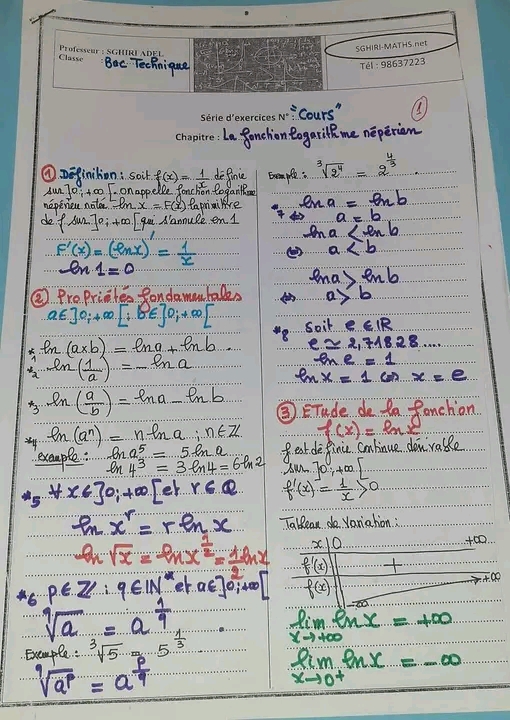 Professeur : SGHIRI ADEL
Classe : Bac Technique
SGHIRI-MATHS.net
Tél : 98637223
1
Série d'exercices N° : "Cours"
Chapitre : La fonction logarithme népérien
① Définition : soit f(x) = 1/x définie
sur ]0;+∞[. on appelle fonction logarithme
népérien notée ln x = F(x) la primitive
de f sur ]0;+∞[ qui s'annule en 1
F'(x) = (ln x)' = 1/x
ln 1 = 0
② Propriétés fondamentales
a∈]0;+∞[ ; b∈]0;+∞[
*1 ln(a×b) = ln a + ln b
*2 ln(1/a) = - ln a
*3 ln(a/b) = ln a - ln b
*4 ln(aⁿ) = n ln a ; n∈ℤ
exemple : ln a⁵ = 5 ln a
ln 4³ = 3 ln 4 = 6 ln 2
*5 ∀x∈]0;+∞[ et r∈ℚ
ln xʳ = r ln x
ln √x = ln x^(1/2) = 1/2 ln x
*6 p∈ℤ ; q∈ℕ* et a∈]0;+∞[
q√a = a^(1/q)
Exemple : ³√5 = 5^(1/3)
q√aᵖ = a^(p/q)
Exemple : ³√2⁴ = 2^(4/3)
*7 ln a = ln b
⇔ a = b
ln a < ln b
⇔ a < b
ln a > ln b
⇔ a > b
*8 Soit e∈IR
e ≃ 2,71828....
ln e = 1
ln x = 1 ⇔ x = e
③ Etude de la fonction
f(x) = ln x
f est définie continue dérivable
sur ]0;+∞[
f'(x) = 1/x > 0
Tableau de Variation :
x 0 +∞
f'(x) +
f(x) -∞ +∞
lim ln x = +∞
x→+∞
lim ln x = -∞
x→0⁺